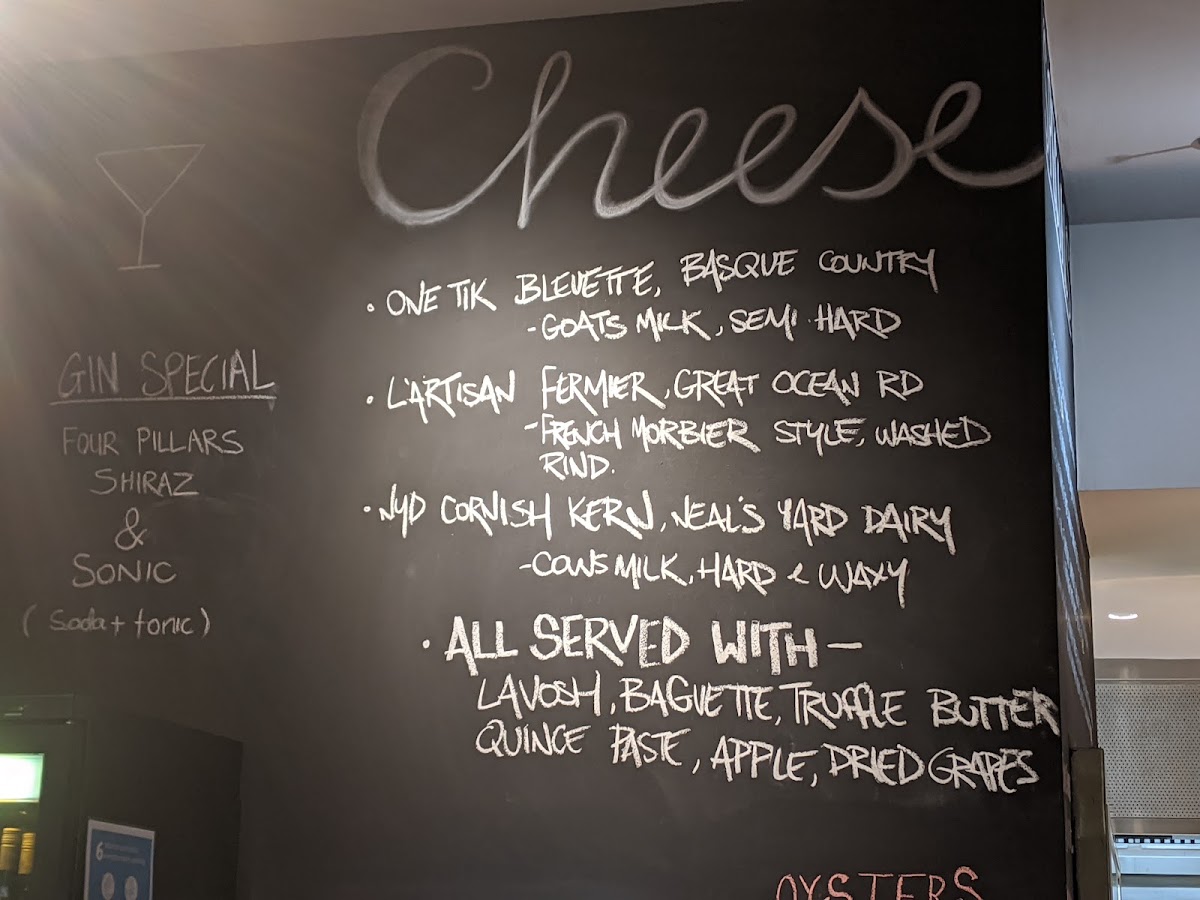 Cheese
• ONETIK BLEUETTE, BASQUE COUNTRY
- GOATS MILK, SEMI HARD
• L'ARTISAN FERMIER, GREAT OCEAN RD
- FRENCH MORBIER STYLE, WASHED
RIND.
• NYD CORNISH KERN, NEAL'S YARD DAIRY
- COWS MILK, HARD & WAXY
• ALL SERVED WITH —
LAVOSH, BAGUETTE, TRUFFLE BUTTER
QUINCE PASTE, APPLE, DRIED GRAPES
OYSTERS
GIN SPECIAL
FOUR PILLARS
SHIRAZ
&
SONIC
(Soda + tonic)
6